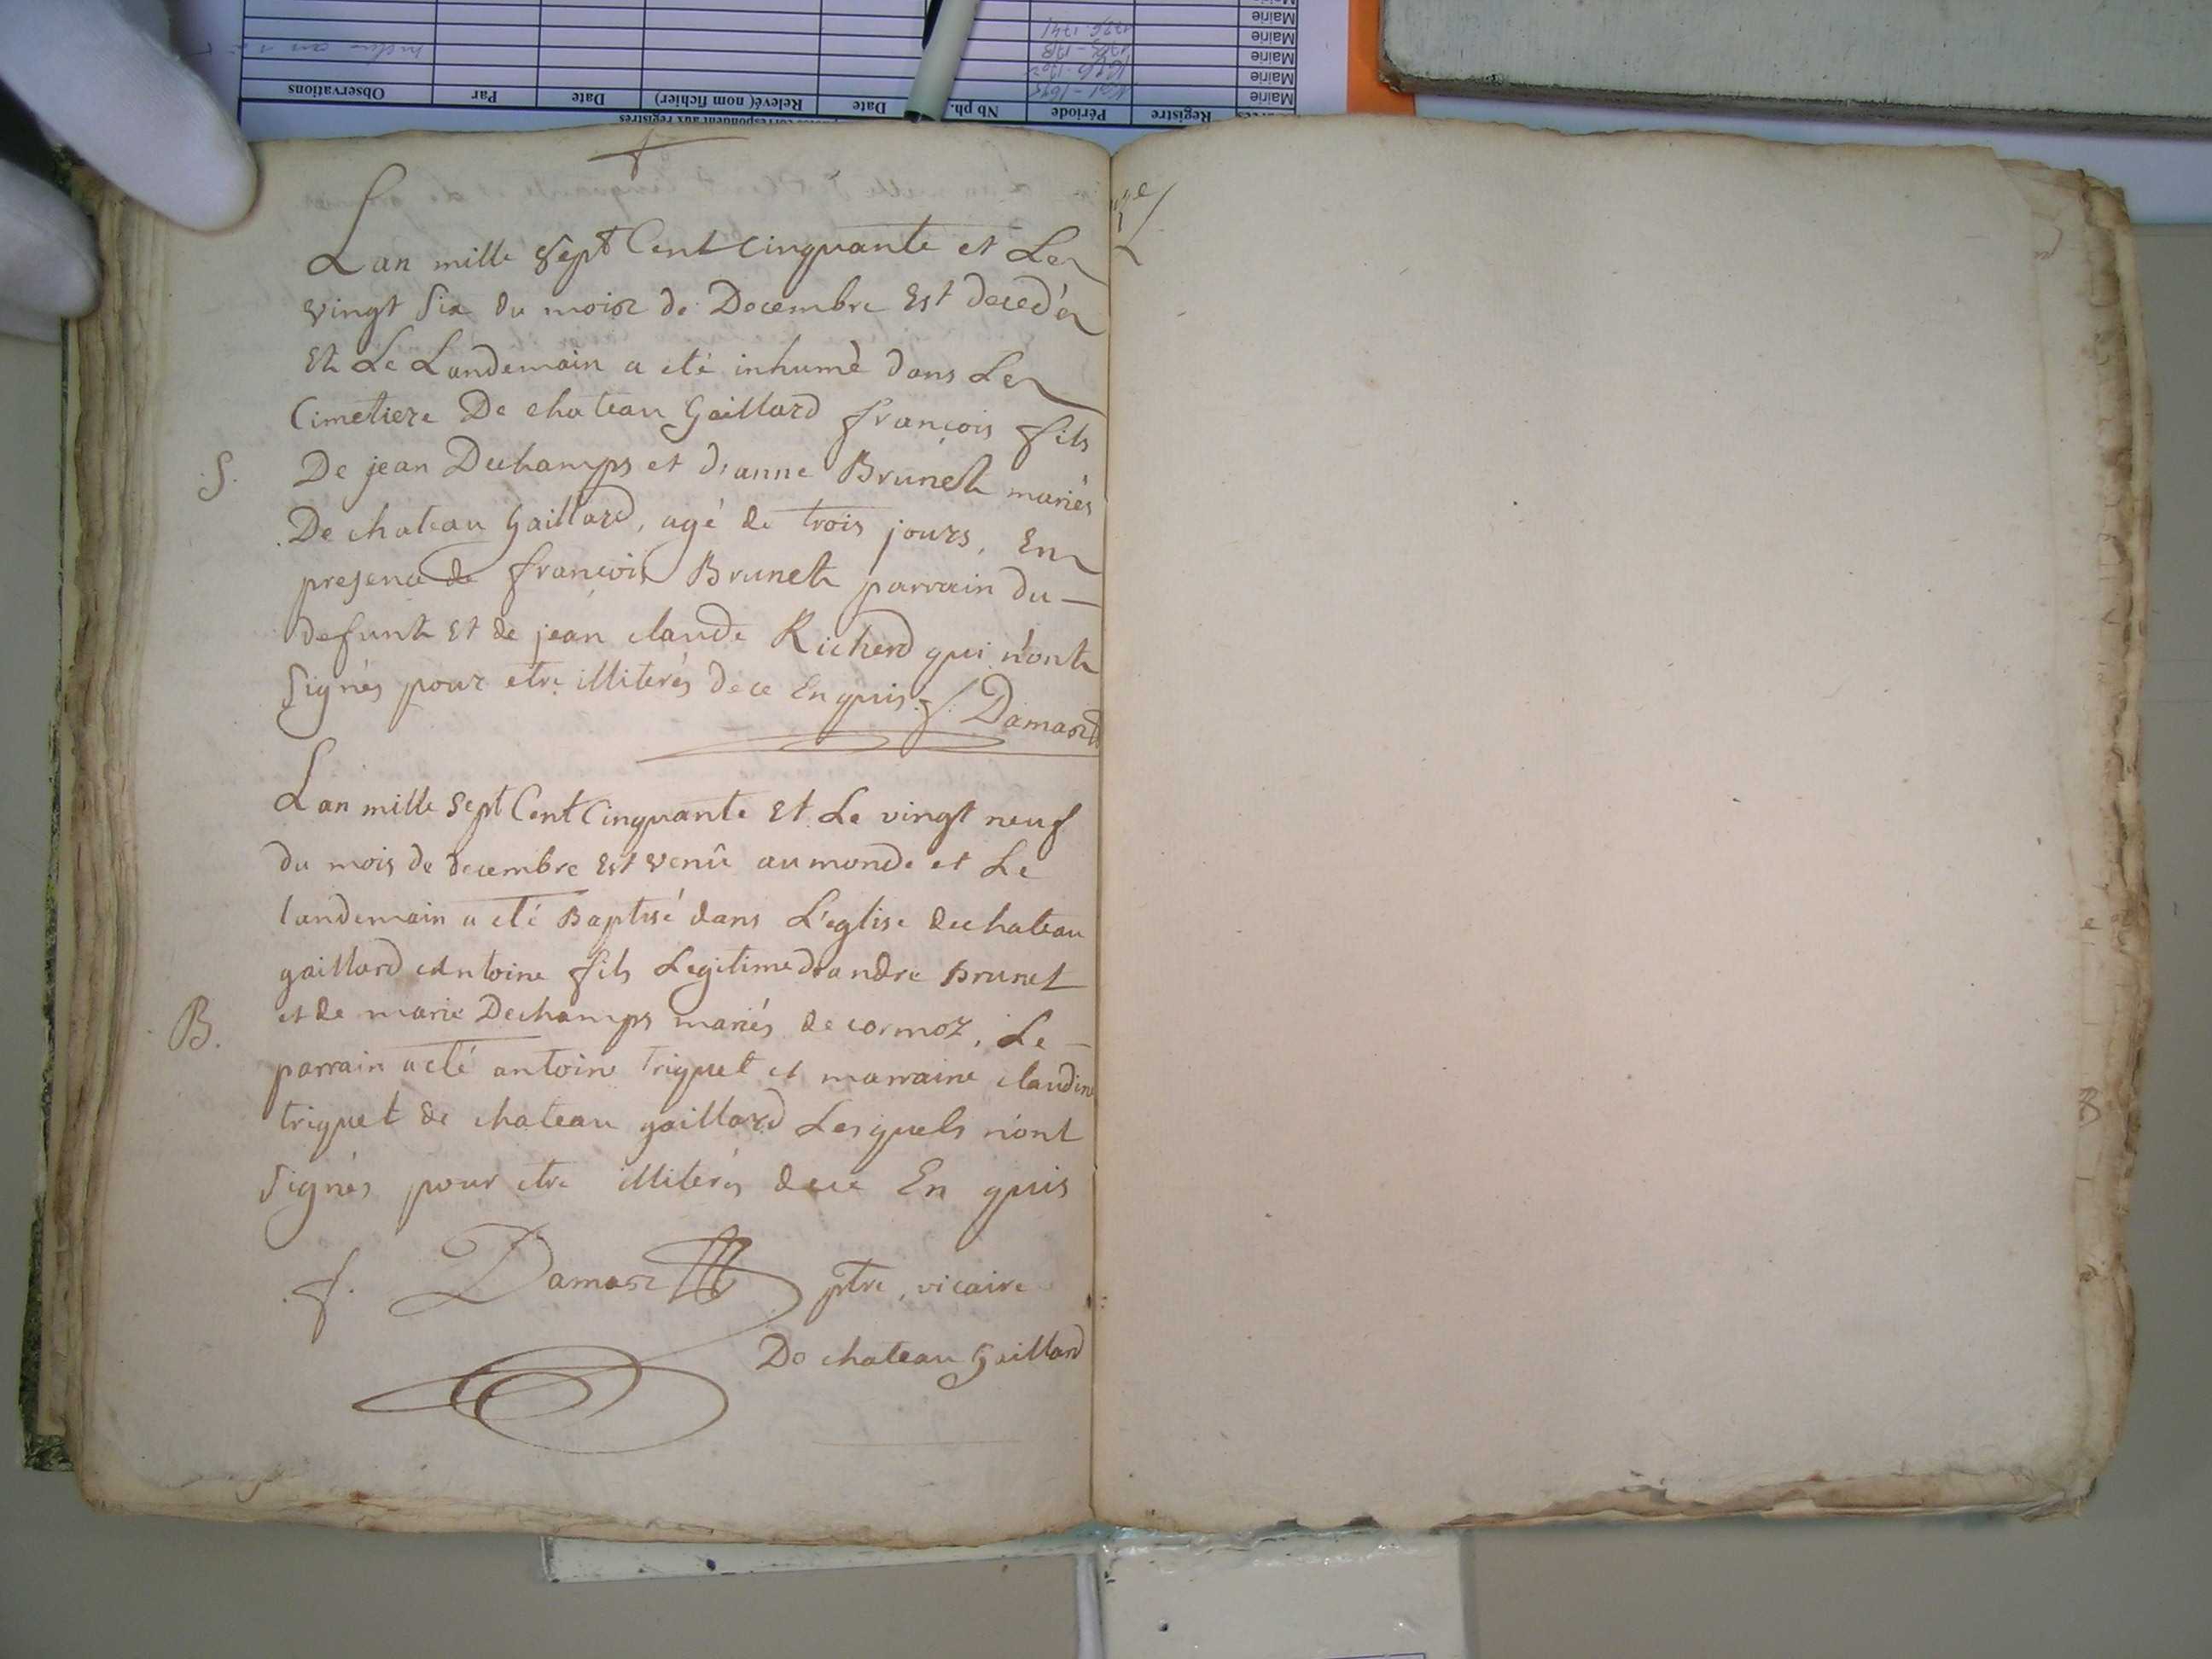 Mairie
Mairie
Mairie
Mairie
Mairie
1726-1741
1703-1713
1691-1695
Registre
Période
Nb ph.
Date
Relevé (nom fichier)
Date
Par
Observations
correspondent aux registres
Lan mille Sept Cent Cinquante et Le
vingt Six du mois de Decembre Est decedé
Et Le Landemain a eté inhumé dans Le
Cimetiere De chateau Gaillard françois fils
S.
De jean Dechamps et d'anne Brunet mariés
De chateau Gaillard, agé de trois jours, En
presence de françois Brunet parrain du
defunt Et de jean claude Richerd qui n'ont
Signés pour etre illiterés de ce Enquis. f. Damas
Lan mille Sept Cent Cinquante Et Le vingt neuf
du mois de decembre Est venû au monde et Le
landemain a eté Baptisé dans L'eglise de chateau
gaillard Antoine fils Legitime d'andre Brunet
B.
et de marie Dechamps mariés de cormoz, Le
parrain a eté antoine Triquet et marraine claudine
triquet de chateau gaillard Lesquels n'ont
Signés pour etre illiterés de ce En quis
f. Damas ptre, vicaire
De chateau Gaillard